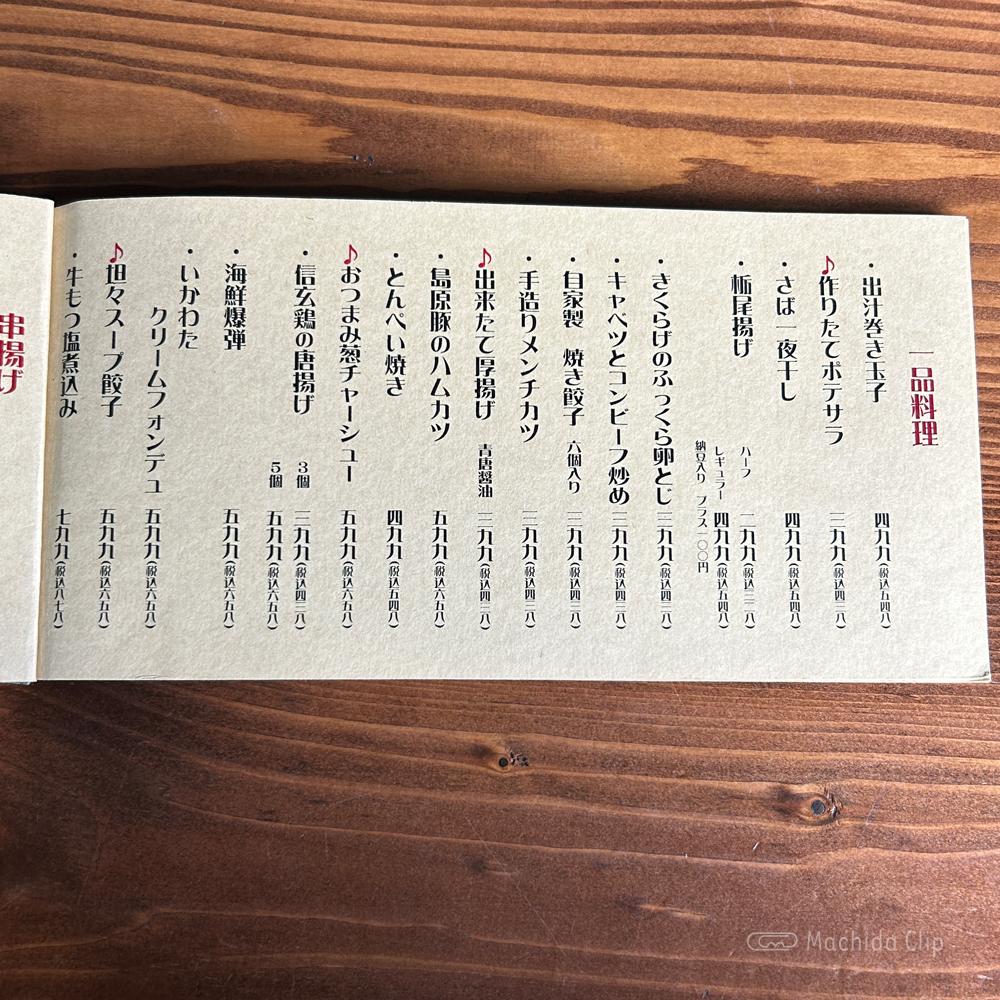 一品料理
・出汁巻き玉子 四九九(税込五四八)
♪作りたてポテサラ 三九九(税込四三八)
・さば一夜干し 四九九(税込五四八)
・栃尾揚げ ハーフ 二九九(税込三二八)
レギュラー 四九九(税込五四八)
納豆入り プラス一〇〇円
・きくらげのふっくら卵とじ 三九九(税込四三八)
・キャベツとコンビーフ炒め 三九九(税込四三八)
・自家製 焼き餃子 六個入り 三九九(税込四三八)
・手造りメンチカツ 三九九(税込四三八)
♪出来たて厚揚げ 青唐醤油 三九九(税込四三八)
・島原豚のハムカツ 五九九(税込六五八)
・とんぺい焼き 四九九(税込五四八)
♪おつまみ葱チャーシュー 五九九(税込六五八)
・信玄鶏の唐揚げ 3個 三九九(税込四三八)
5個 五九九(税込六五八)
・海鮮爆弾 五九九(税込六五八)
・いかわた
クリームフォンデュ 五九九(税込六五八)
♪坦々スープ餃子 五九九(税込六五八)
・牛もつ塩煮込み 七九九(税込八七八)
串揚げ
Machida Clip